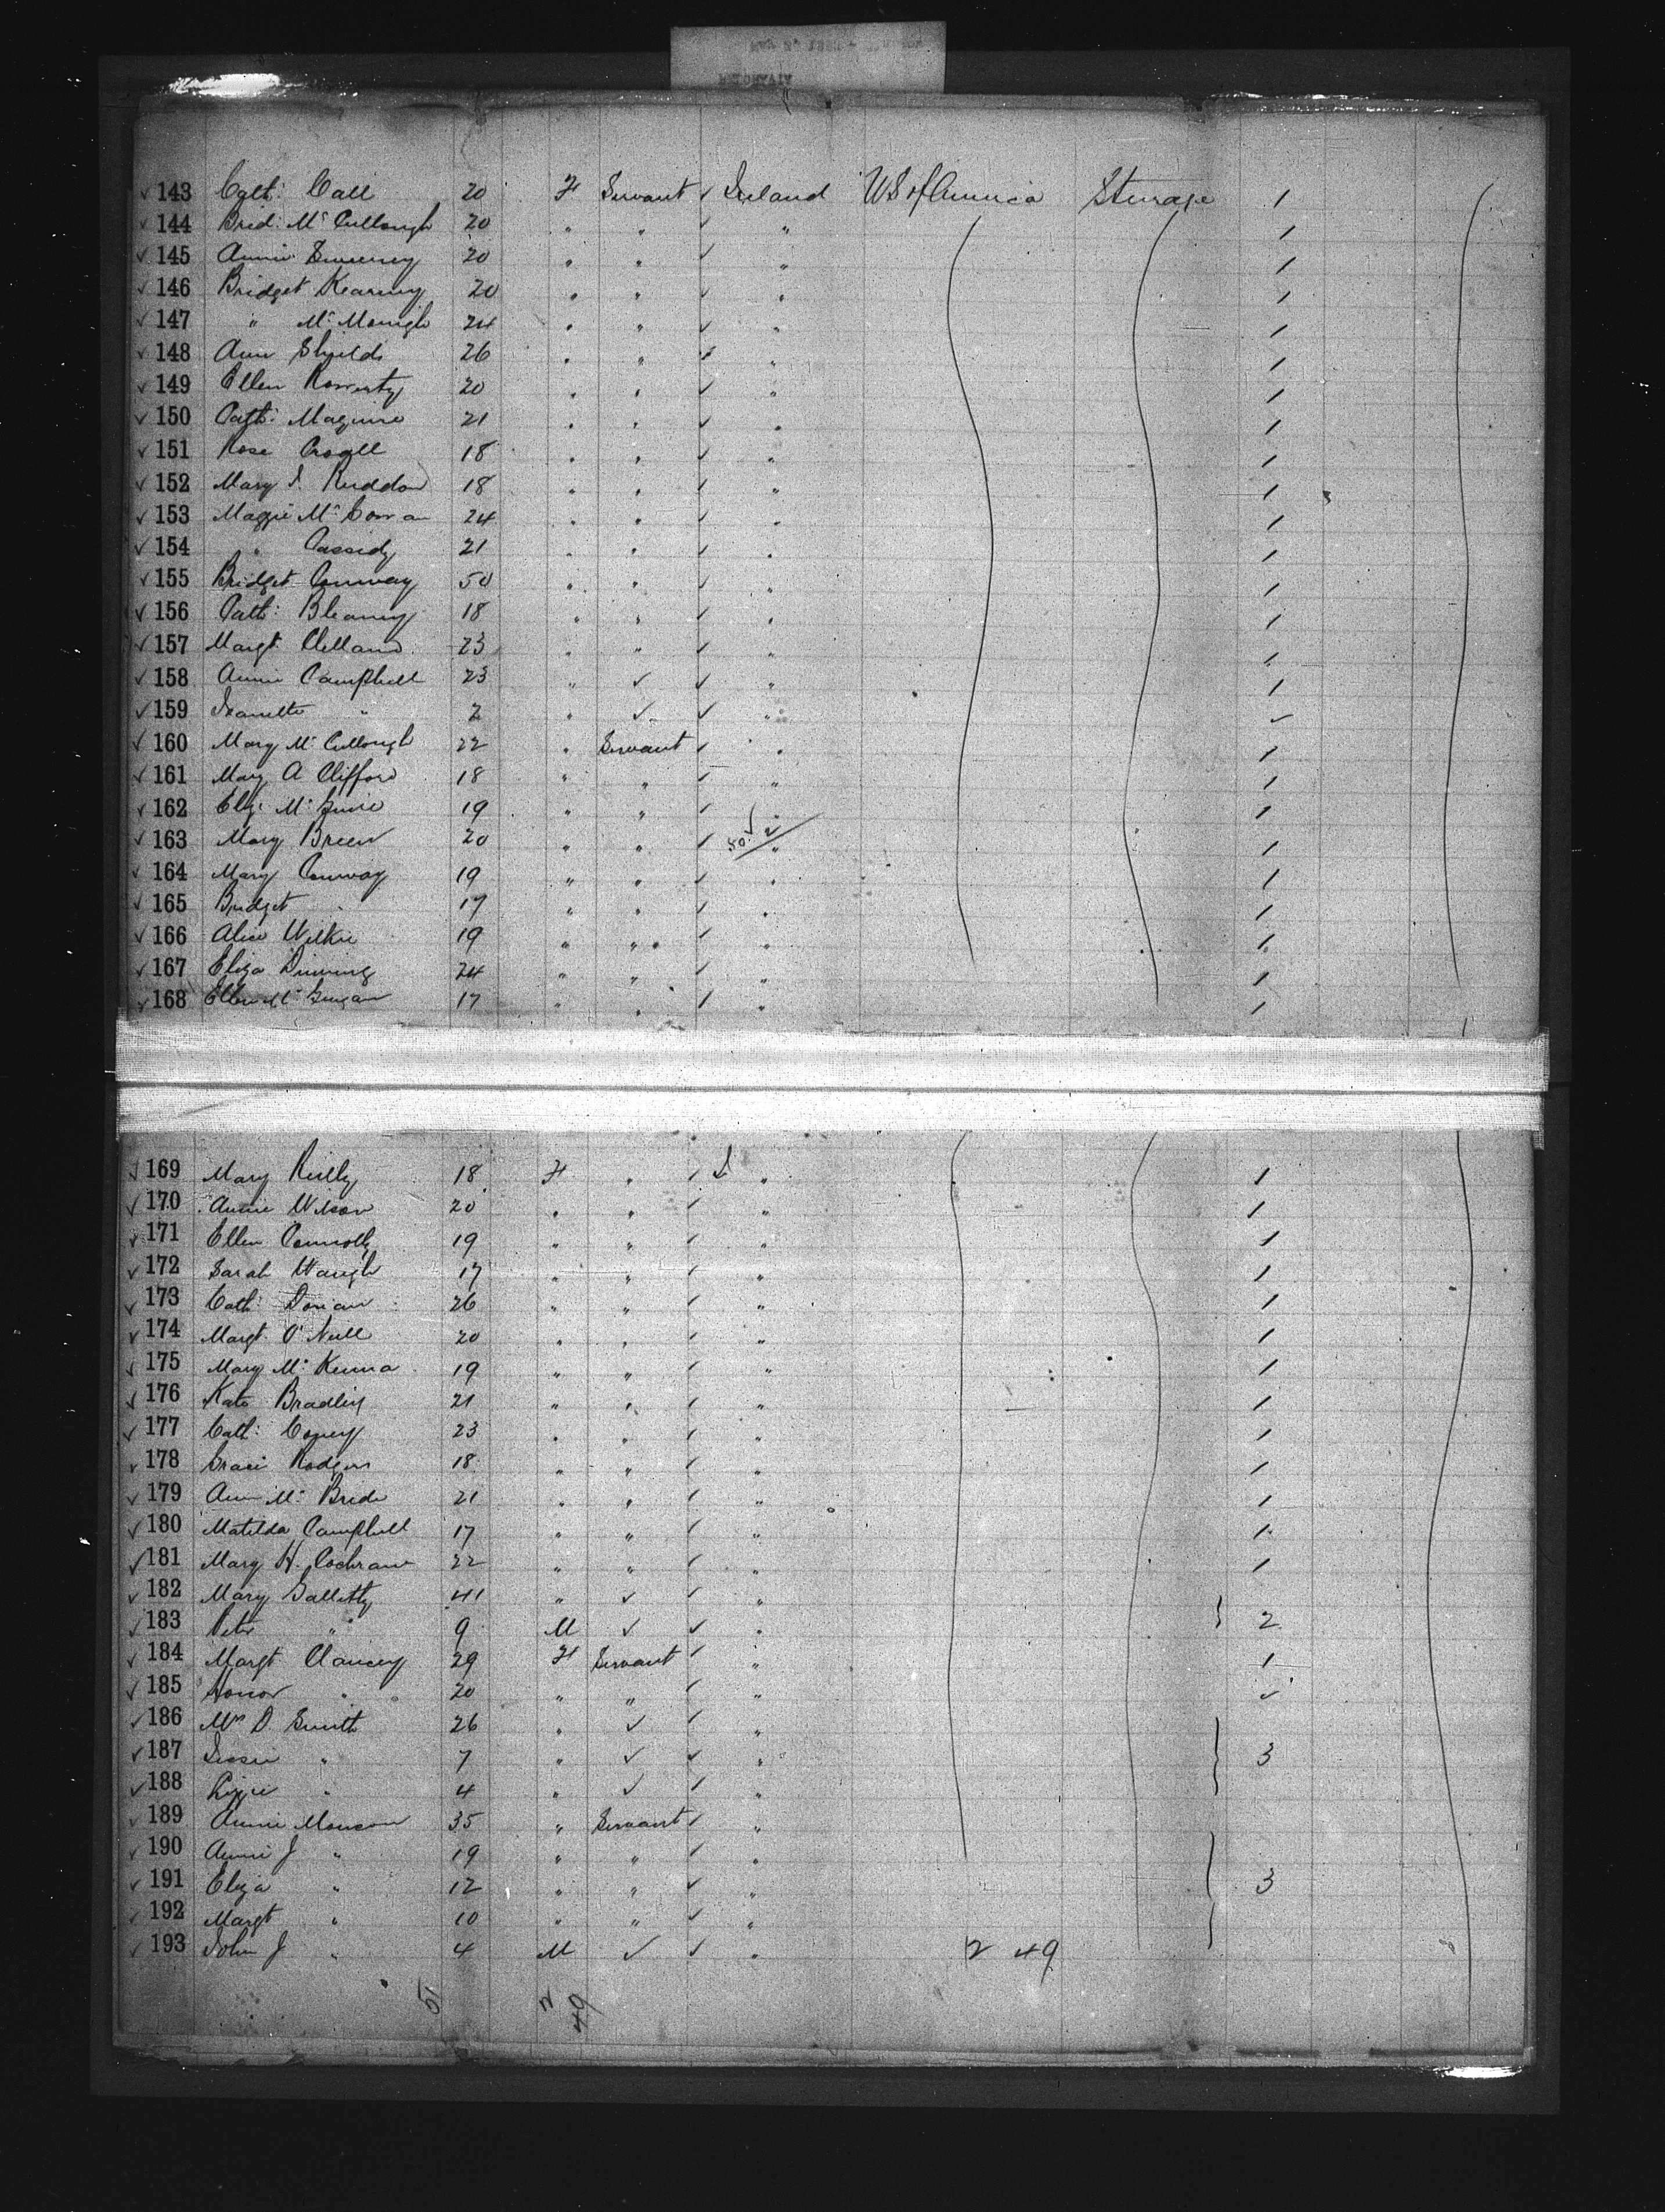 143 Cath: Call 20 F Servant ✓ Ireland US of America Steerage 1
144 Brid: McCullough 20 " " ✓ " 1
145 Annie Sweeney 20 " " ✓ " 1
146 Bridget Kearney 20 " " ✓ " 1
147 " McMonigle 24 " " ✓ " 1
148 Ann Shields 26 " " ✓ " 1
149 Ellen 20 " " ✓ " 1
150 Cath: Maguire 21 " " ✓ " 1
151 Rose 18 " " ✓ " 1
152 Mary 18 " " ✓ " 1
153 Maggie 24 " " ✓ " 1
154 " Cassidy 21 " " ✓ " 1
155 Bridget Conway 50 " " ✓ " 1
156 Cath: Bleaney 18 " " ✓ " 1
157 Margt. Clelland 23 " " ✓ " 1
158 Annie Campbell 23 " ✓ ✓ " 1
159 " 2 " ✓ ✓ " ✓
160 Mary McCullough 22 " Servant ✓ " 1
161 Mary A Clifford 18 " " ✓ " 1
162 Eliz: 19 " " ✓ " 1
163 Mary Breen 20 " " ✓ " 1
164 Mary Conway 19 " " ✓ " 1
165 Bridget " 17 " " ✓ " 1
166 Alice Wilkie 19 " " ✓ " 1
167 Eliza 24 " " ✓ " 1
168 Ellen 17 " " ✓ " 1
169 Mary Reilly 18 F " ✓ " 1
170 Annie Wilson 20 " " ✓ " 1
171 Ellen Connolly 19 " " ✓ " 1
172 Sarah Waugh 17 " " ✓ " 1
173 Cath: Dorian 26 " " ✓ " 1
174 Margt. O'Neill 20 " " ✓ " 1
175 Mary McKenna 19 " " ✓ " 1
176 Kate Bradley 21 " " ✓ " 1
177 Cath: Coney 23 " " ✓ " 1
178 Grace Rodgers 18 " " ✓ " 1
179 Ann McBride 21 " " ✓ " 1
180 Matilda Campbell 17 " " ✓ " 1
181 Mary H. Cochrane 22 " " ✓ " 1
182 Mary 41 " ✓ ✓ "
183 Peter " 9 M ✓ ✓ " 2
184 Margt Clancey 29 F Servant ✓ " 1
185 Honor " 20 " " ✓ " ✓
186 Mrs D. Smith 26 " ✓ ✓ "
187 Jessie " 7 " ✓ ✓ " 3
188 Lizzie " 4 " ✓ ✓ "
189 Annie 35 " Servant ✓ "
190 Annie J " 19 " " ✓ "
191 Eliza " 12 " " ✓ " 3
192 Margt " 10 " " ✓ "
193 John J " 4 M ✓ ✓ " 2 49
51 2 49